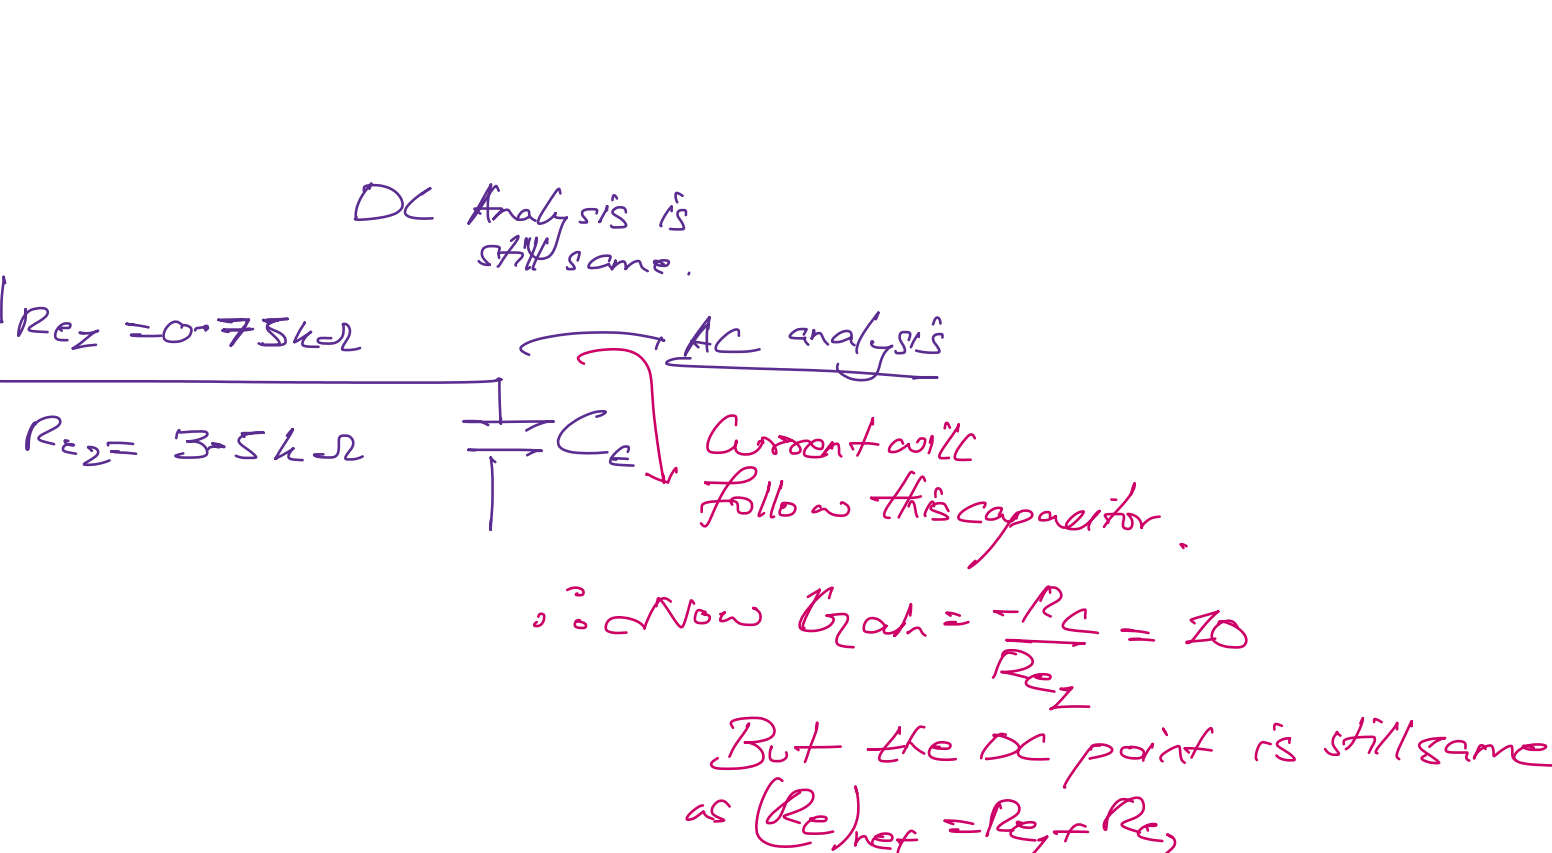 DC Analysis is
still same.
Re1 = 0.75kΩ
AC analysis
Re2 = 3.5kΩ
CE
Current will
follow this capacitor.
∴ Now Gain = -RC/Re1 = 10
But the DC point is still same
as (Re)net = Re1 + Re2